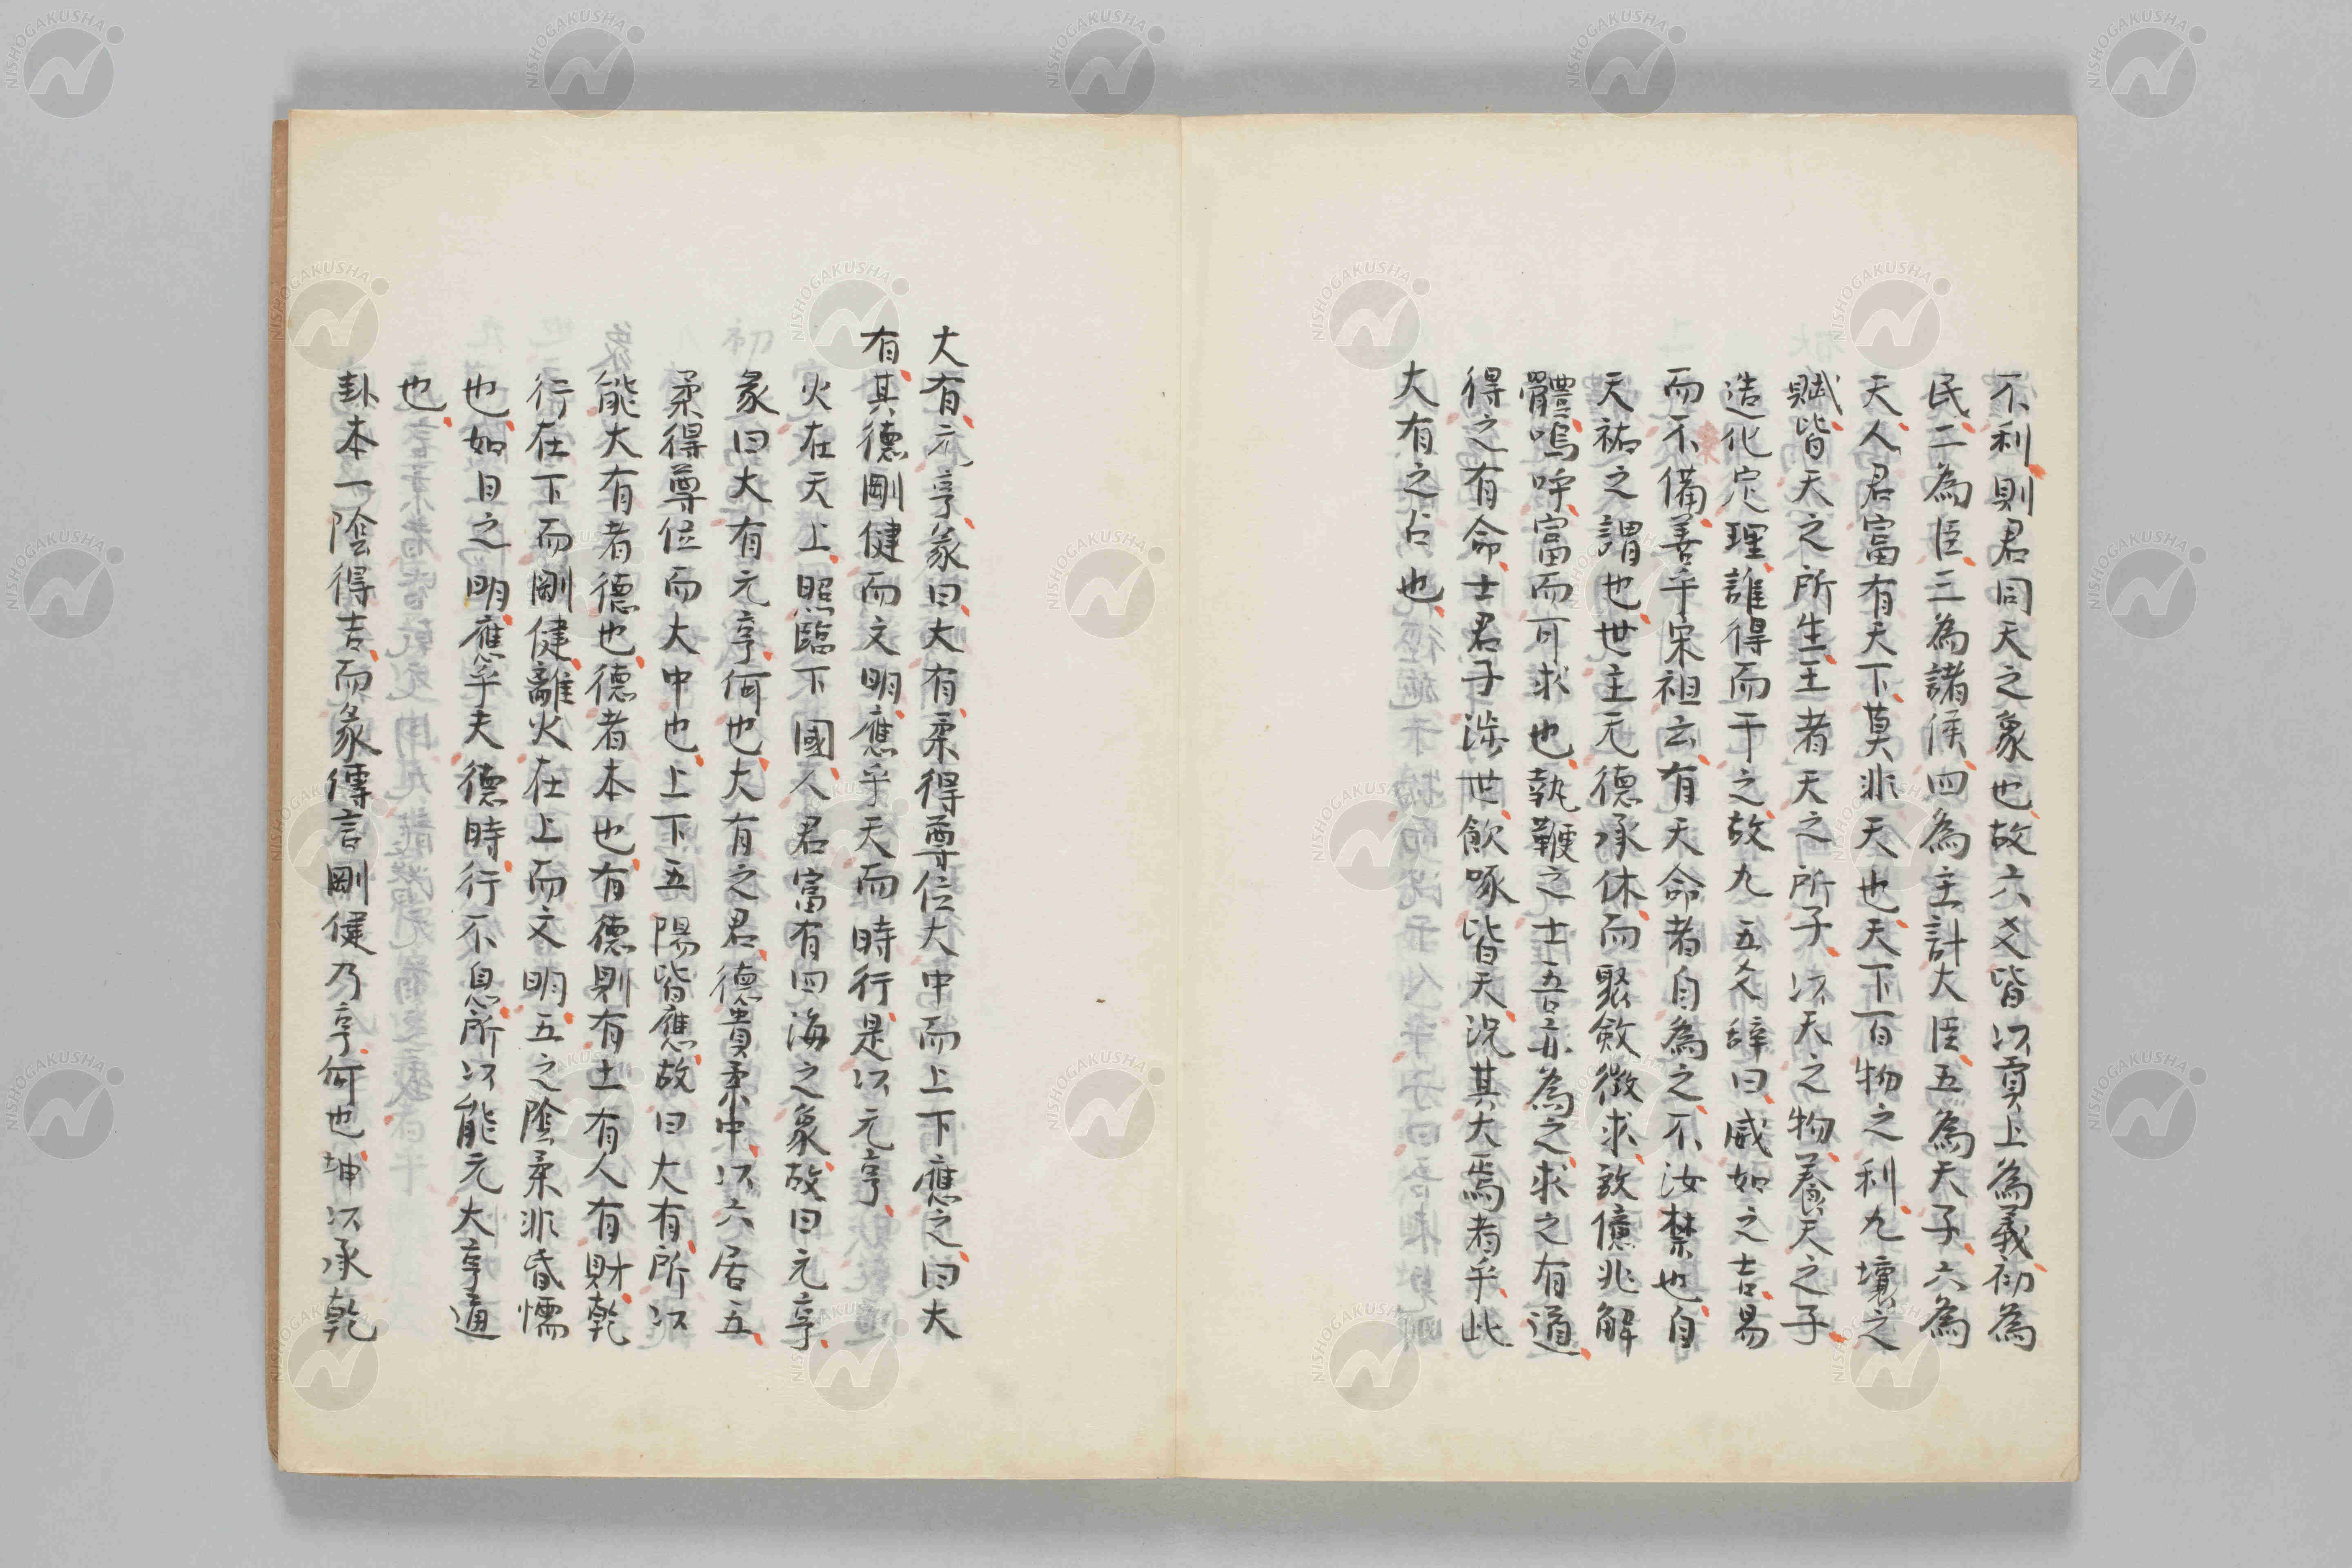 不利則君同天之象也故六爻皆以貢上為義初為
民二為臣三為諸侯四為主計大臣五為天子六為
天人君富有天下莫非天也天下百物之利九壤之
賦皆天之所生王者天之所子以天之物養天之子
造化定理誰得而干之故九五爻辞曰威如之吉易
而不備善乎宋祖云有天命者自為之不汝禁也自
天祐之謂也世主无德承休而聚斂徴求致億兆解
體嗚呼富而可求也執鞭之士吾亦為之求之有道
得之有命士君子涉世飲啄皆天況其大焉者乎此
大有之占也
大有元亨彖曰大有柔得尊位大中而上下應之曰大
有其德剛健而文明應乎天而時行是以元亨
火在天上照臨下國人君富有四海之象故曰元亨
彖曰大有元亨何也大有之君德貴柔中以六居五
柔得尊位而大中也上下五陽皆應故曰大有所以
能大有者德也德者本也有德則有土有人有財乾
行在下而剛健離火在上而文明五之陰柔非昏懦
也如日之明應乎天德時行不息所以能元大亨通
也
卦本一陰得吉而彖傳言剛健乃亨何也坤以承乾
初
NISHOGAKUSHA